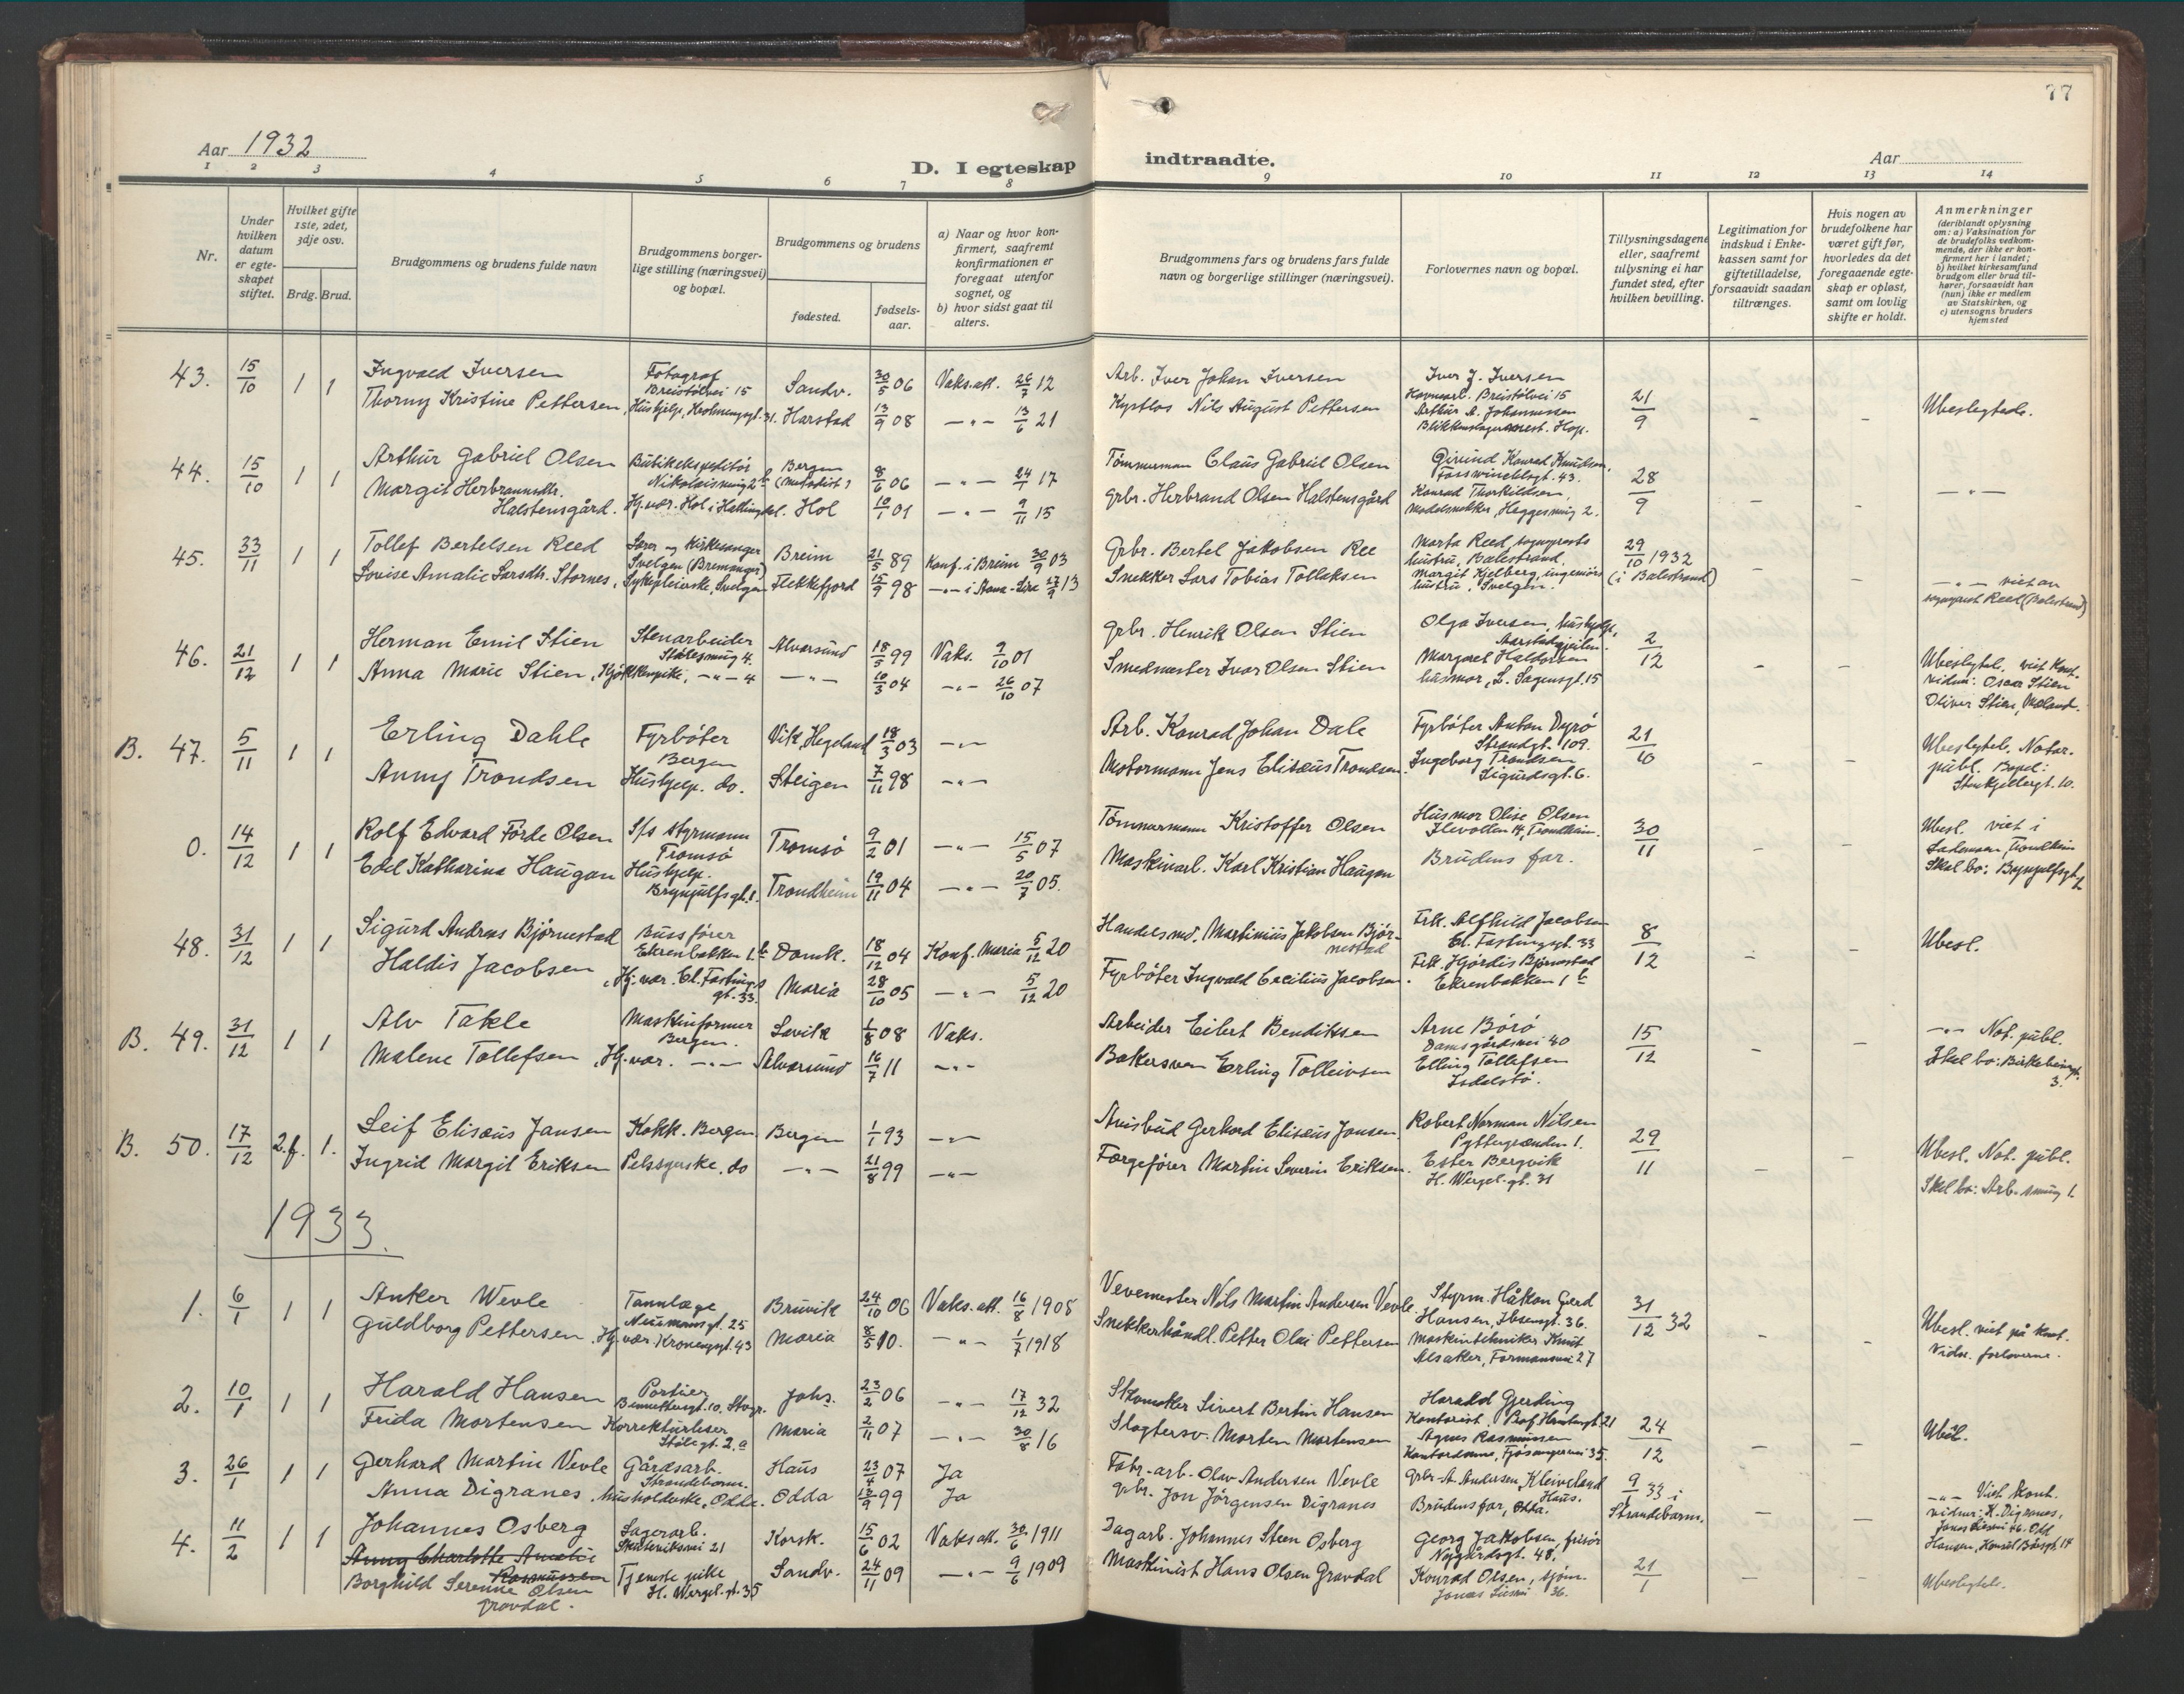 77
Aar 1932
D. I egteskap indtraadte.
Aar
1 2 3 4 5 6 7 8 9 10 11 12 13 14
Nr.
Under hvilken datum er egteskapet stiftet.
Hvilket gifte 1ste, 2det, 3dje osv.
Brdg. Brud.
Brudgommens og brudens fulde navn
Brudgommens borgerlige stilling (næringsvei) og bopæl.
Brudgommens og brudens
fødested.
fødselsaar.
a) Naar og hvor konfirmert, saafremt konfirmationen er foregaat utenfor sognet, og
b) hvor sidst gaat til alters.
Brudgommens fars og brudens fars fulde navn og borgerlige stillinger (næringsvei).
Forlovernes navn og bopæl.
Tillysningsdagene eller, saafremt tillysning ei har fundet sted, efter hvilken bevilling.
Legitimation for indskud i Enkekassen samt for giftetilladelse, forsaavidt saadan tiltrænges.
Hvis nogen av brudefolkene har været gift før, hvorledes da det foregaaende egteskap er opløst, samt om lovlig skifte er holdt.
Anmerkninger
(deriblandt oplysning om: a) Vaksination for de brudefolks vedkommende, der ikke er konfirmert her i landet; b) hvilket kirkesamfund brudgom eller brud tilhører, forsaavidt han (hun) ikke er medlem av Statskirken, og c) utensogns bruders hjemsted
43. 15/10 1 1 Ingvald Iversen Fotograf Breistølvei 15 Sandv. 30/5 06 Vaks.att. 26/7 12 Arb. Iver Johan Iversen Iver J. Iversen Havnearb. Breistølvei 15 21/9 Ubeslegtede.
Thorny Kristine Pettersen, Hushjelp, Harstad 13/9 08 —"— 13/6 21 Nils August Pettersen Arthur A. Johannessen Blikkenslagermest. Hop.
44. 15/10 1 1 Arthur Gabriel Olsen Butikekspeditør Bergen (Metodist) 8/6 06 —"— 24/7 17 Tømmermann Claus Gabriel Olsen Konrad Knudsen, 43. 28/9 —"—
Margit Herbrandsdtr. Halstensgård. Hj.vær. Hol i Hallingdal. Hol 10/1 01 —"— 9/11 15 Grbr. Herbrand Olsen Halstensgård Konrad Thorkildsen, Modelsnekker, Heggesmug 2.
45. 1 1 Tollef Bertelsen Reed Lærer og Kirkesanger Svelgen (Bremanger) Breim 21/5 89 Konf. i Breim 30/9 03 Grbr. Bertel Jakobsen Ree Marta Reed, sogneprests hustru, Balestrand. 29/10 1932 (i Balestrand) —"— viet av sogneprest Reed (Balestrand)
Lovise Amalie Larsdtr. Stornes, Sykepleierske, Svelgen Flekkefjord 15/9 98 Snekker Lars Tobias Tollaksen Margit Kjelberg, ingeniørs hustru, Svelgen.
46. 21/12 1 1 Herman Emil Stien Stenarbeider Stølesmug 4. Alversund 18/5 99 Vaks. 01 Grbr. Henrik Olsen Stien Olga Iversen, hushjelp, 2/12 Ubeslegtede, viet Kont.
Anna Marie Stien, Kjøkkenpike, —"— 4 —"— 10/3 04 —"— 26/10 07 Smedmester Ivar Olsen Stien Margaret Haldorsen husmor, L. Sagensgt. 15 vidner: Oscar Stien Oliver Stien, Meland.
B. 47. 5/11 1 1 Erling Dahle Fyrbøter Bergen 18/3 03 —"— Arb. Konrad Johan Dale Fyrbøter Anton Dyrø Strandgt. 109. 21/10 Ubeslegtede. Notar. publ. Bopel:
Anny Trondsen Hushjelp. do. Steigen 7/11 98 —"— Motormann Jens Eliseus Trondsen. Ingeborg Trondsen Sigurdsgt. 6.
0. 14/12 1 1 Rolf Edvard Förde Olsen S/s styrmann Tromsø Tromsø 9/2 01 —"— 15/5 07 Tømmermann Kristoffer Olsen Husmor Olise Olsen Ilevollen 14, Trondheim. 30/11 Ubesl. viet i Lademoen, Trondheim
Edel Katharina Haugan Hushjelp. Brynjulfsgt. 1. Trondheim 19/11 04 —"— 20/7 05. Maskinarb. Karl Kristian Haugan Brudens far. Skal bo: Brynjulfsgt.
48. 31/12 1 1 Sigurd Andreas Bjørnestad Bussfører Ekrenbakken 1.b Domk. 18/12 04 Konf. Maria 5/12 20 Handelsmd. Martinius Jakobsen Bjørnestad Frk. Alfhild Jacobsen Cl. Fastingsgt. 33 8/12 Ubesl.
Haldis Jacobsen, Hj. vær. Cl. Fastingsgt. 33. Maria 28/10 05 —"— 5/12 20 Fyrbøter Ingvald Cecilius Jacobsen. Frk. Hjørdis Bjørnestad Ekrenbakken 1 b
B. 49. 31/12 1 1 Alv Takle Maskinformer Bergen. Lavik 1/8 08 Vaks. Arbeider Eilert Bendiksen Arne Børø Damsgårdsvei 40 15/12 —"— Not. publ.
Malene Tollefsen, Hj. vær. —"— Alversund 16/7 11 —"— Bakersven Erling Tolleivsen Elling Tollefsen Isdalstø. Skal bo: Birkebeinergt. 3.
B. 50. 17/12 2.f. 1. Leif Eliseus Jansen Kokk. Bergen Bergen 1/1 93 —"— Avisbud Gerhard Eliseus Jansen. Robert Norman Nilsen Pyttergrænden 1. 29/11 Ubesl. Not. publ.
Ingrid Margit Eriksen Pelssyerske. do —"— 21/8 99 —"— Færgefører Martin Severin Eriksen. Ester Bergvik H. Wergel. gt. 31 Skal bo: Arb. smug 1.
1933.
1. 6/1 1 1 Anker Wevle Tannlæge Neumansgt. 25 Bruvik 24/10 06 Vaks. att. 16/8 1908 Vevemester Nils Martin Andersen Vevle. Styrm. Håkon Gerd Hansen, Ibsensgt. 36. 31/12 32 Ubesl. viet på kont.
Guldborg Pettersen. Hj. vær. Kronengsgt. 43 Maria 8/5 10. —"— 1/7 1918 Snekkerhåndl. Petter Olai Pettersen Maskintekniker Knut Alsaker, Formannsvei 27 Vidn. forloverne.
2. 10/1 1 1 Harald Hansen Portier Johs. 23/2 06 —"— 17/12 32 Skomaker Sivert Bertin Hansen Harald Gjerding Kontorist, 21 24/12 Ubesl.
Frida Mortensen Korrekturleser Stølegt. 2.a Maria 2/11 07 —"— 30/8 16 Slagtersv. Morten Mortensen Agnes Rasmussen Kontordame, Fjøsangervei 35.
3. 26/1 1 1 Gerhard Martin Vevle Gårdsarb. Strandebarm. Haus 23/4 07 Ja Fabr.-arb. Olav Andersen Vevle Grbr. A. Andersen, Kleiveland Haus. 9/1 33 i Strandebarm. —"— Viet kont.
Anna Digranes. Husholderske. Odda. Odda 99 Ja Grbr. Jon Jörgensen Digranes Brudens far, Odda. vidner: K. Digranes, Jonas Liesvei 46. Odd Hansen,
4. 11/2 1 1 Johannes Osberg Lagerarb. 21 Korsk. 15/6 02 Vaks att. 30/6 1911 Dagarb. Johannes Steen Osberg Georg Jakobsen, frisør Nygårdsgt. 48. 21/1 Ubeslegtede.
Anny Charlotte Amalie Rasmussen
Borghild Serenne Olsen Gravdal. Tjenestepike H. Wergel. gt. 35 Sandv. 24/11 09 —"— 9/6 1909 Maskinist Hans Olsen Gravdal Konrad Olsen, sjøm. Jonas Liesvei 36.